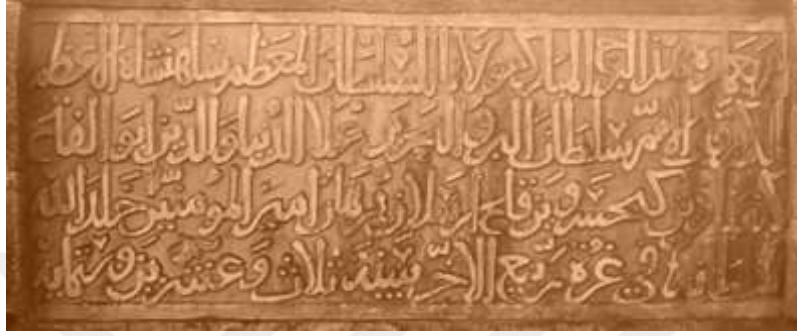 بعمارة هذا البرج المبارك مولانا السلطان المعظم شاهنشاه الاعظم
الامم سلطان البر والبحرين علا الدنيا والدين ابو الفتح
كيقباد بن كيخسرو بن قلج ارسلان برهان امير المؤمنين خلد الله
في غرة ربيع الاخر سنة ثلاث وعشرين وستمائة